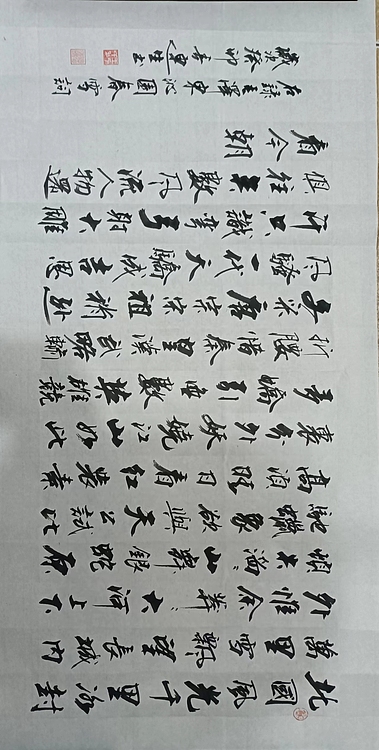 北國風光千里冰封
萬里雪飄望長城內
外惟余莽〻大河上下
頓失滔〻山舞銀蛇原
馳蠟象欲與天公試比
高須晴日看紅裝素
裹分外妖嬈江山如此
多嬌引無數英雄競
折腰惜秦皇漢武略輸
文采唐宗宋祖稍遜
風騷一代天驕成吉思
汗只識彎弓射大雕
俱往矣數風流人物還
看今朝
右錄毛澤東沁園春雪詞
歲次癸卯春